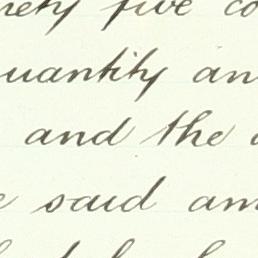 nety five co
uantity an
and the
said am